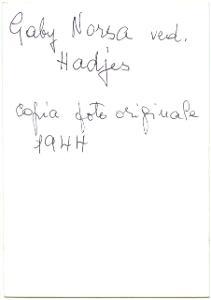 Gaby Norsa ved.
Hadjes
copia foto originale
1944